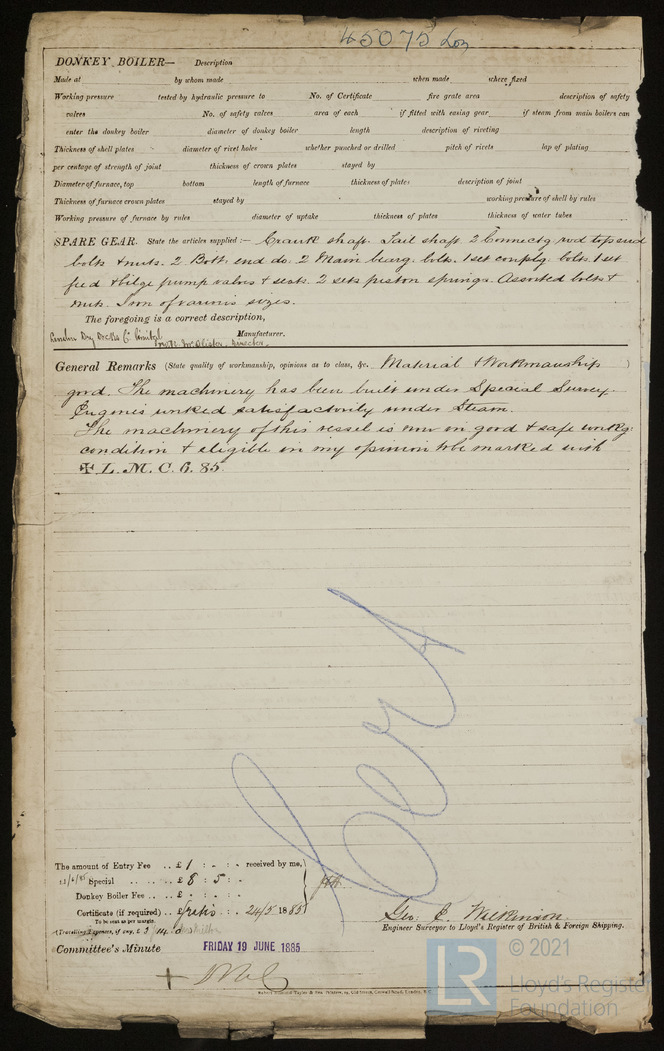 45075 Lon
DONKEY BOILER— Description
Made at by whom made when made where fixed
Working pressure tested by hydraulic pressure to No. of Certificate fire grate area description of safety
valves No. of safety valves area of each if fitted with easing gear if steam from main boilers can
enter the donkey boiler diameter of donkey boiler length description of riveting
Thickness of shell plates diameter of rivet holes whether punched or drilled pitch of rivets lap of plating
per centage of strength of joint thickness of crown plates stayed by
Diameter of furnace, top bottom length of furnace thickness of plates description of joint
Thickness of furnace crown plates stayed by working pressure of shell by rules
Working pressure of furnace by rules diameter of uptake thickness of plates thickness of water tubes
SPARE GEAR. State the articles supplied:— Crank shaft. Tail shaft. 2 Connectg rod top end
bolts & nuts. 2 Bott. end do. 2 Main bearg. bolts. 1 set couplg. bolts. 1 set
feed & bilge pump valves & seats. 2 sets piston springs. Assorted bolts &
nuts. Iron of various sizes.
The foregoing is a correct description,
London Dry Docks Co. Limited Manufacturer.
Director.
General Remarks (State quality of workmanship, opinions as to class, &c. Material & Workmanship )
good. The machinery has been built under Special Survey.
Engines worked satisfactorily under Steam.
The machinery of this vessel is now in good & safe workg.
condition & eligible in my opinion to be marked with
✠ L. M. C. 6. 85.
Cert
The amount of Entry Fee .. £ 1 : - : - received by me,
Special .. .. £ 8 : 5 : -
Donkey Boiler Fee .. £ - : - : -
Certificate (if required) .. £ gratis : - 24/5 1885
To be sent as per margin.
(Travelling Expenses, if any, £ 3 14.0
Geo. C. Wilkinson.
Engineer Surveyor to Lloyd's Register of British & Foreign Shipping.
Committee's Minute FRIDAY 19 JUNE 1885
LR
© 2021
Lloyd's Register
Foundation